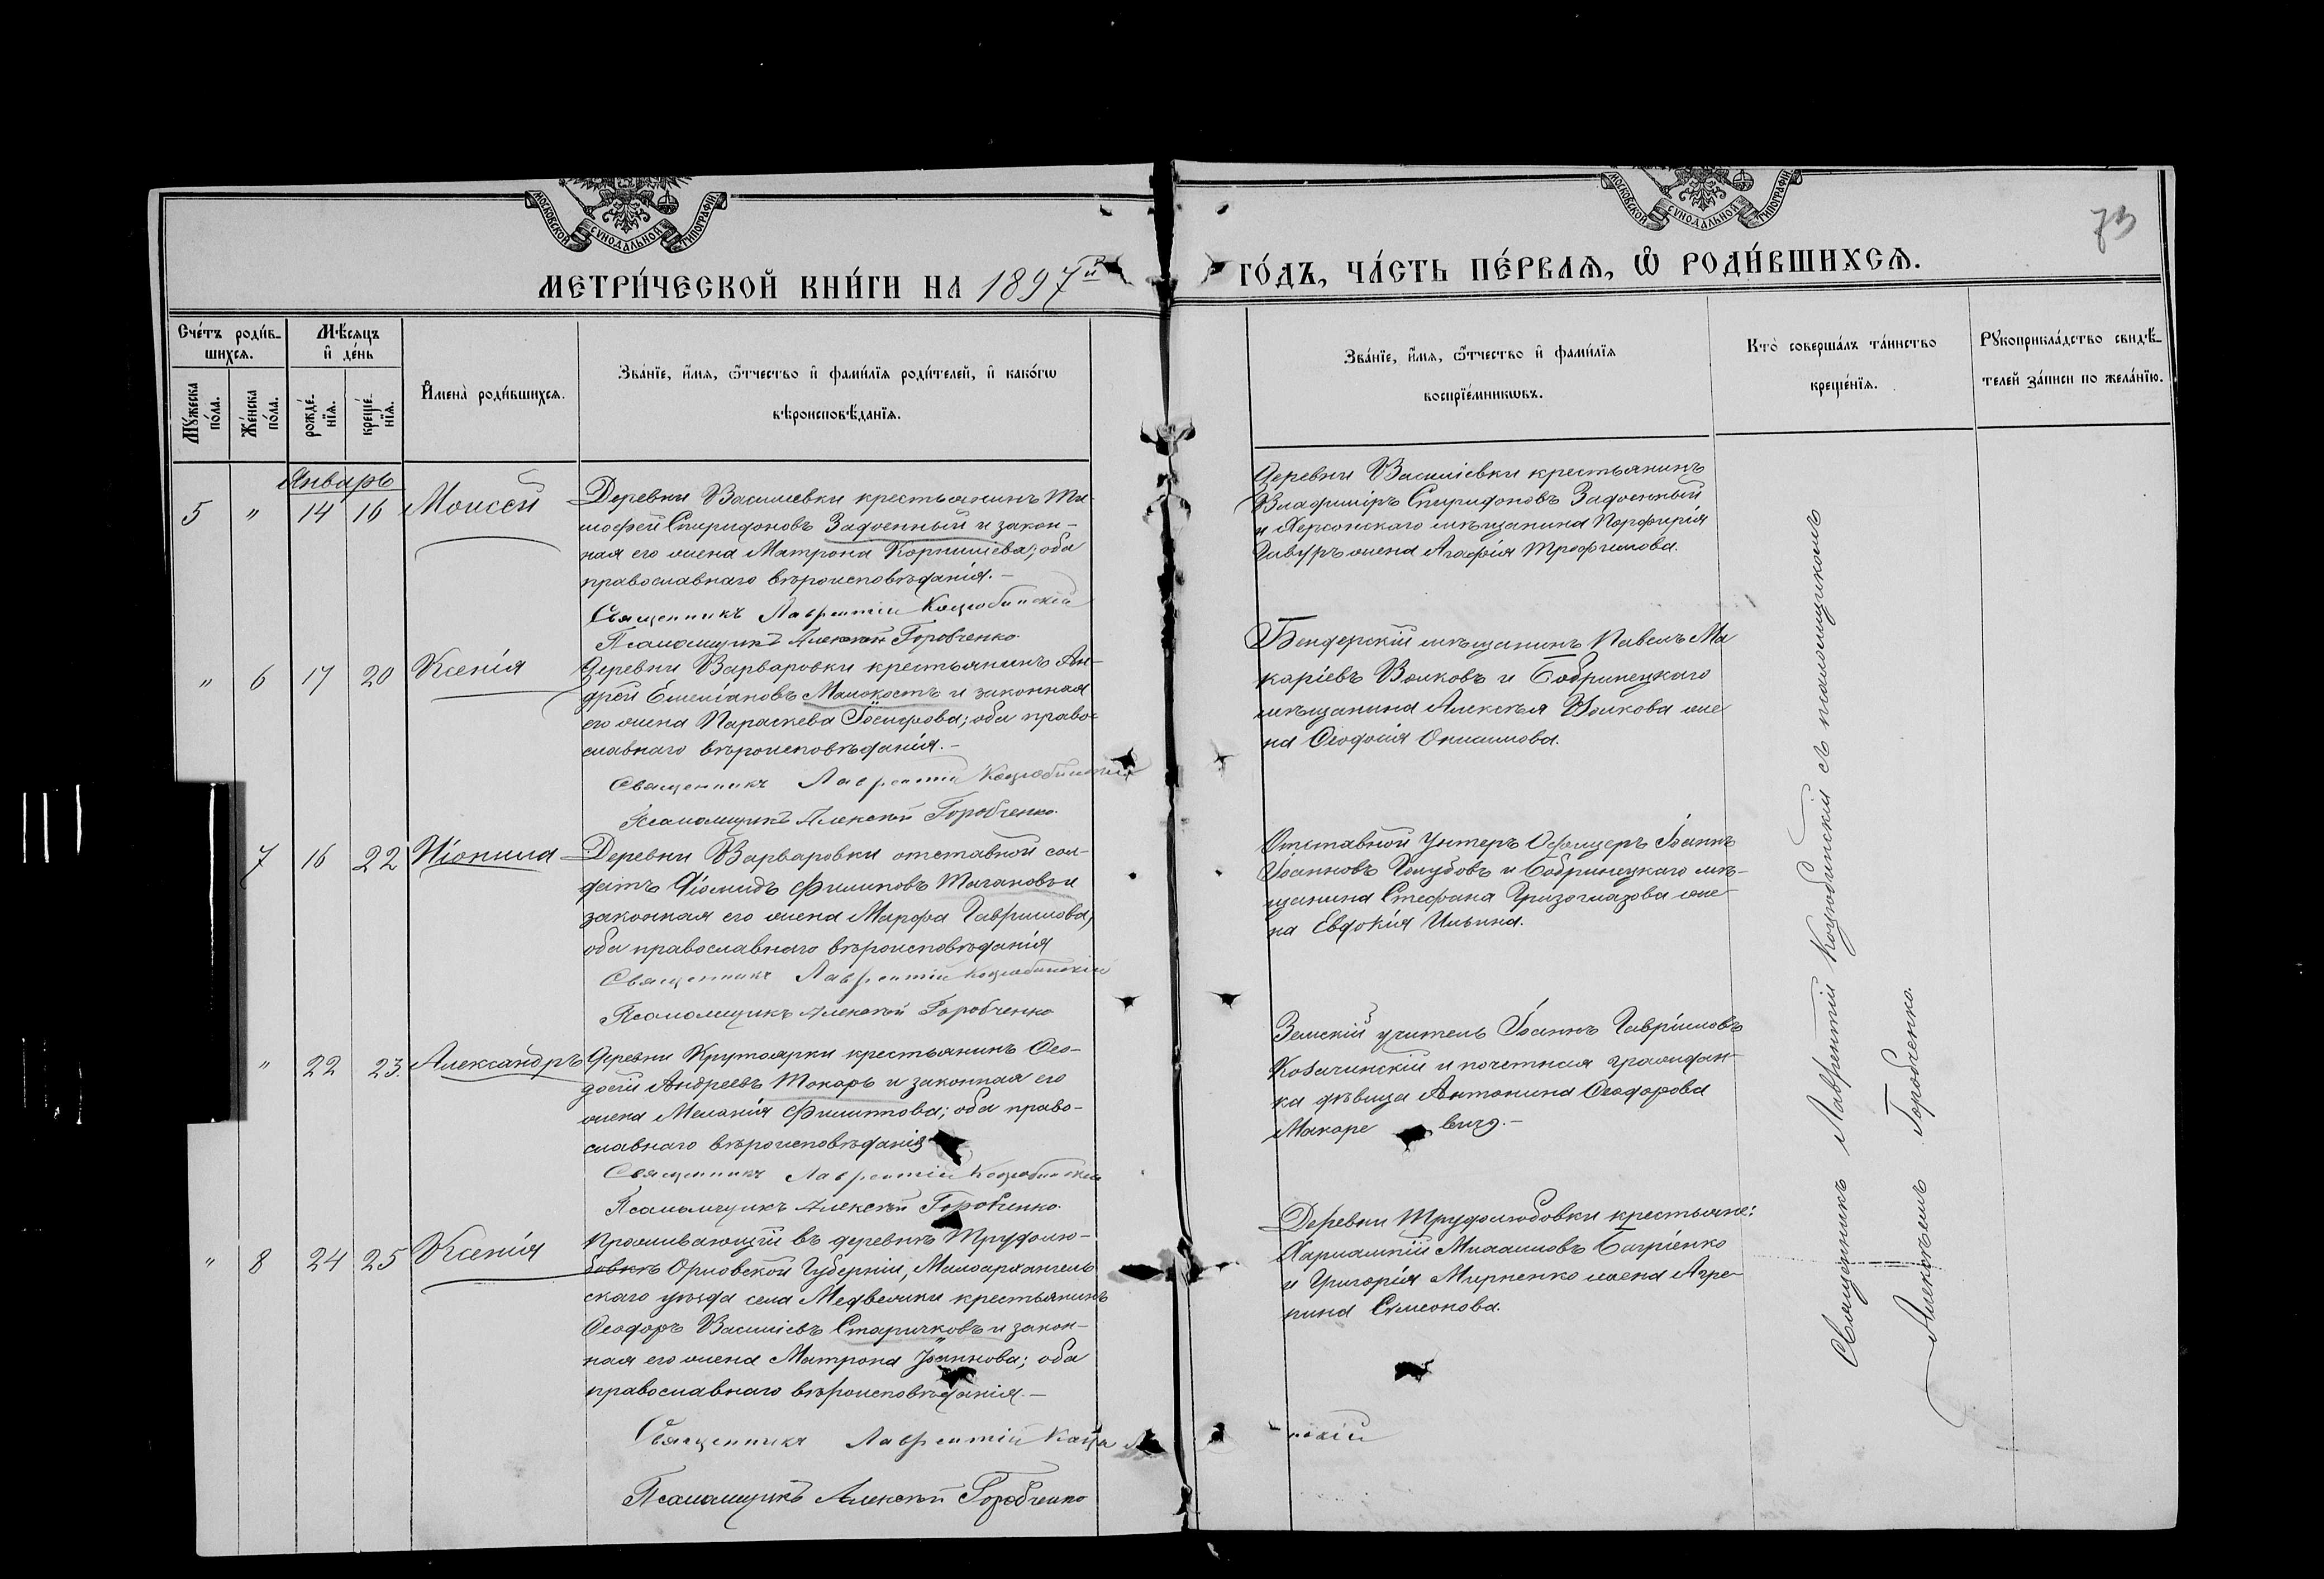 МОСКОВСКОЙ СѴНОДАЛЬНОЙ ТИПОГРАФІИ
МОСКОВСКОЙ СѴНОДАЛЬНОЙ ТИПОГРАФІИ
73
МЕТРИ́ЧЕСКОЙ КНИ́ГИ НА 1897й
ГО́ДЪ, ЧА́СТЬ ПЕ́РВАѦ, Ѡ РОДИ́ВШИХСѦ.
Сче́тъ роди́в-
шихсѧ.
Мѣ́сѧцъ
и де́нь
Мꙋ́жеска по́ла.
Же́нска по́ла.
рожде́-
нїѧ.
креще́-
нїѧ.
Имена̀ роди́вшихсѧ.
Зва́нїе, и́мѧ, ѻ́тчество и фами́лїѧ роди́телей, и како́гѡ
вѣроисповѣ́данїѧ.
Зва́нїе, и́мѧ, ѻ́тчество и фами́лїѧ
воспрїе́мникѡвъ.
Кто̀ соверша́лъ та́инство
креще́нїѧ.
Рꙋкоприкла́дство свидѣ́-
телей за́писи по жела́нїю.
Январь
5 " 14 16 Моисей
Деревни Василиевки крестьянинъ Ти-
мофей Спиридоновъ Задоенный и закон-
ная его жена Матрона Корнилиева; оба
православнаго вѣроисповѣданія.-
Священникъ Лаврентій Коцюбинскій
Псаломщикъ Алексѣй Горобченко
Деревни Василіевки крестьянинъ
Владиміръ Спиридоновъ Задоенный
и Херсонскаго мѣщанина Порфирія
жена Агафія Трофимова.
" 6 17 20 Ксенія
Деревни Варваровки крестьянинъ Ан-
дрей Емеліановъ Малокостъ и законная
его жена Параскева Іосифова; оба право-
славнаго вѣроисповѣданія.-
Священникъ Лаврентій Коцюбинскій
Псаломщикъ Алексѣй Горобченко.
Бендерскій мѣщанинъ Павелъ Ма
каріевъ Волковъ и Бобринецкаго
мѣщанина Алексѣя Волкова же
на Ѳеодосія Онисимова.
7 16 22 Нонила
Деревни Варваровки отставной сол-
датъ Діомидъ Филиповъ Тагановъ и
законная его жена Марфа Гавриилова;
оба православнаго вѣроисповѣданія
Священникъ Лаврентій Коцюбинскій
Псаломщикъ Алексѣй Горобченко
Отставной Унтеръ Офицеръ Іоаннъ
Іоанновъ Голубовъ и Бобринецкаго мѣ-
щанина Стефана же
на Евдокія Ильина.
" 22 23. Александръ
Деревни Крутоярки крестьянинъ Ѳео-
досій Андреевъ Токарь и законная его
жена Меланія Филиппова; оба право-
славнаго вѣроисповѣданія
Священникъ Лаврентій Коцюбинскій
Псаломщикъ Алексѣй Горобченко.
Земскій учитель Іоаннъ Гавріиловъ
Козачинскій и почетная граждан-
ка дѣвица Антонина Ѳеодорова
Макаре вичъ.-
" 8 24 25 Ксенія
Проживающій въ деревнѣ Трудолю-
бовкѣ Орловской Губерніи, Малоархангель
скаго уѣзда села Медвежки крестьянинъ
Ѳеодоръ Василіевъ Старичковъ и закон-
ная его жена Матрона Іоаннова; оба
православнаго вѣроисповѣданія.-
Священникъ Лаврентій Коцю нскій
Псаломщикъ Алексѣй Горобченко
Деревни Трудолюбовки крестьяне:
Харлампій Михаиловъ Багріенко
и Григорія Мирненко жена Агре-
пина Симонова.
Священникъ Лаврентій Коцюбинскій съ псаломщикомъ
Алексѣемъ Горобченко.